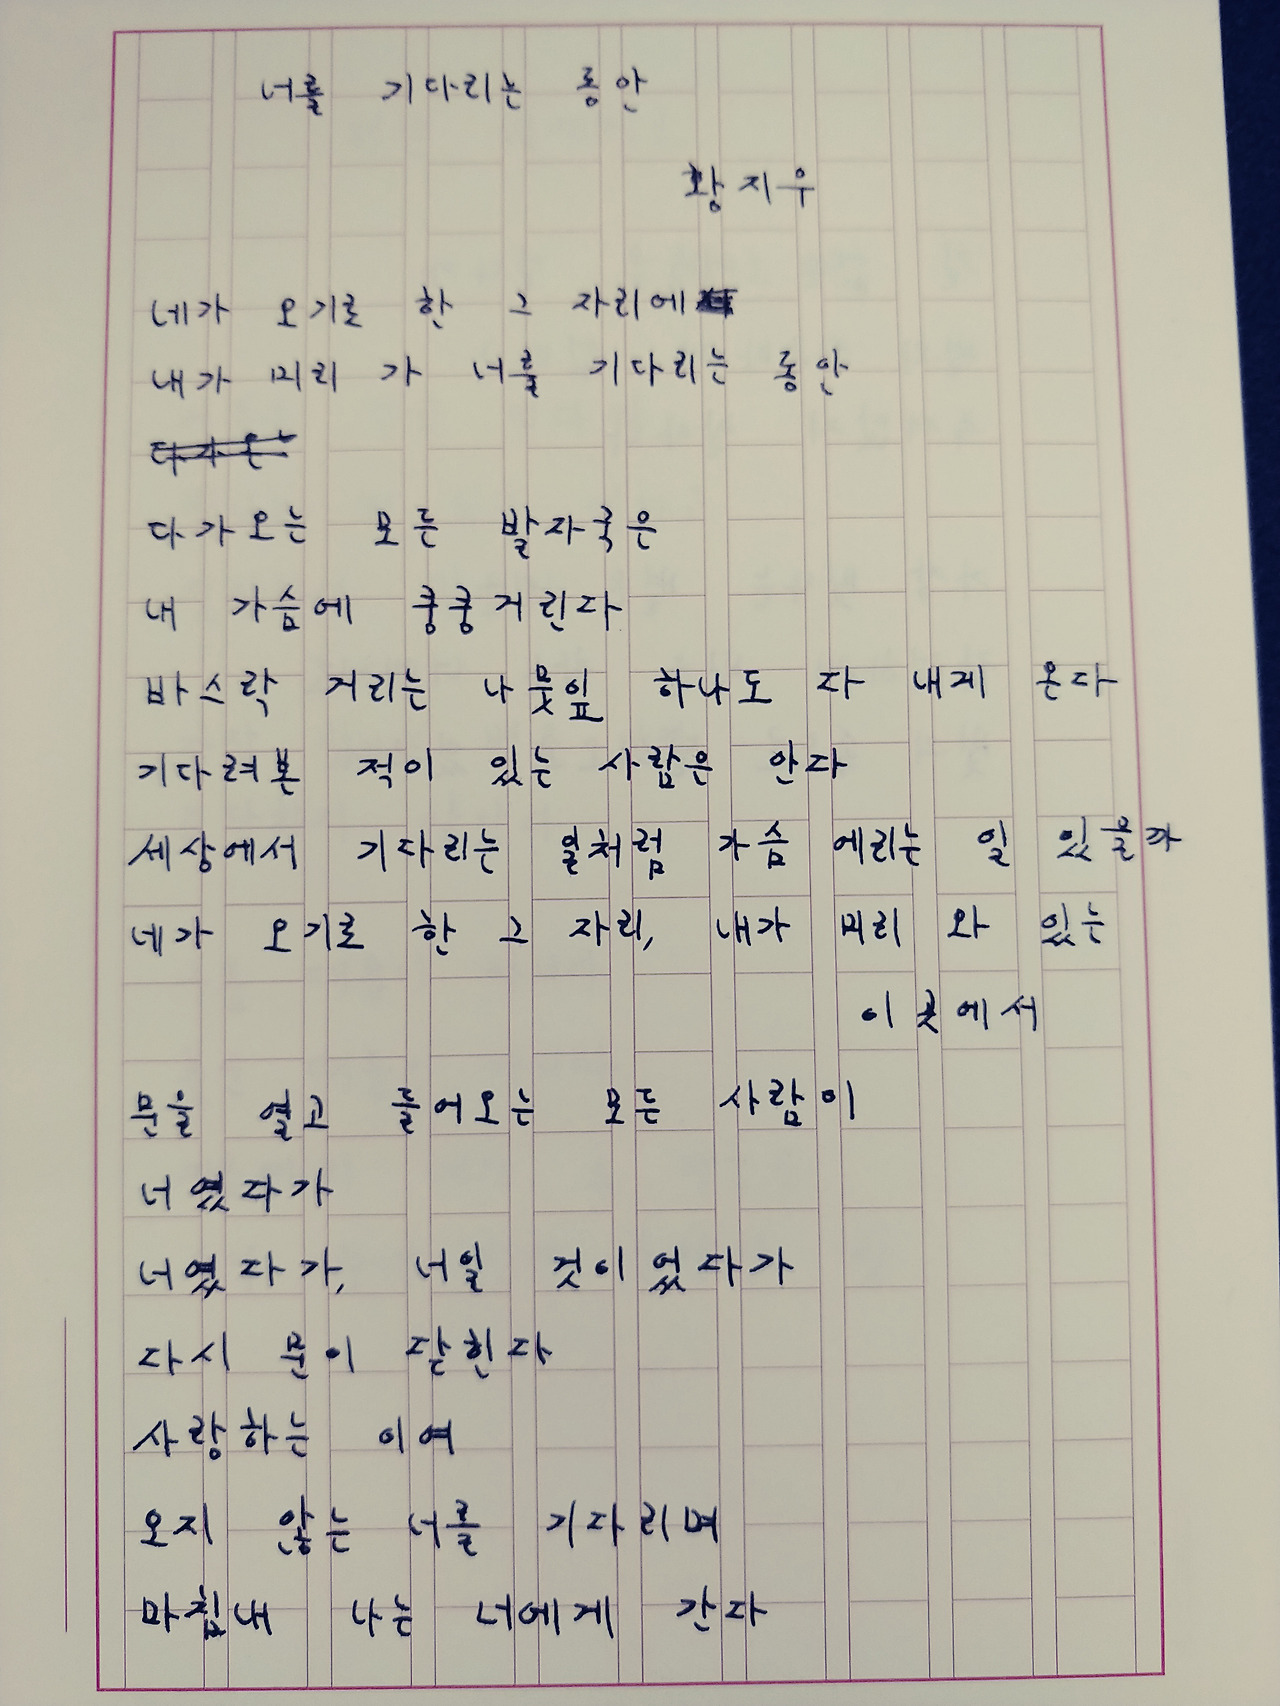 너를 기다리는 동안
황지우
네가 오기로 한 그 자리에
내가 미리 가 너를 기다리는 동안
다가오는
다가오는 모든 발자국은
내 가슴에 쿵쿵거린다
바스락 거리는 나뭇잎 하나도 다 내게 온다
기다려본 적이 있는 사람은 안다
세상에서 기다리는 일처럼 가슴 에리는 일 있을까
네가 오기로 한 그 자리, 내가 미리 와 있는
이곳에서
문을 열고 들어오는 모든 사람이
너였다가
너였다가, 너일 것이었다가
다시 문이 닫힌다
사랑하는 이여
오지 않는 너를 기다리며
마침내 나는 너에게 간다